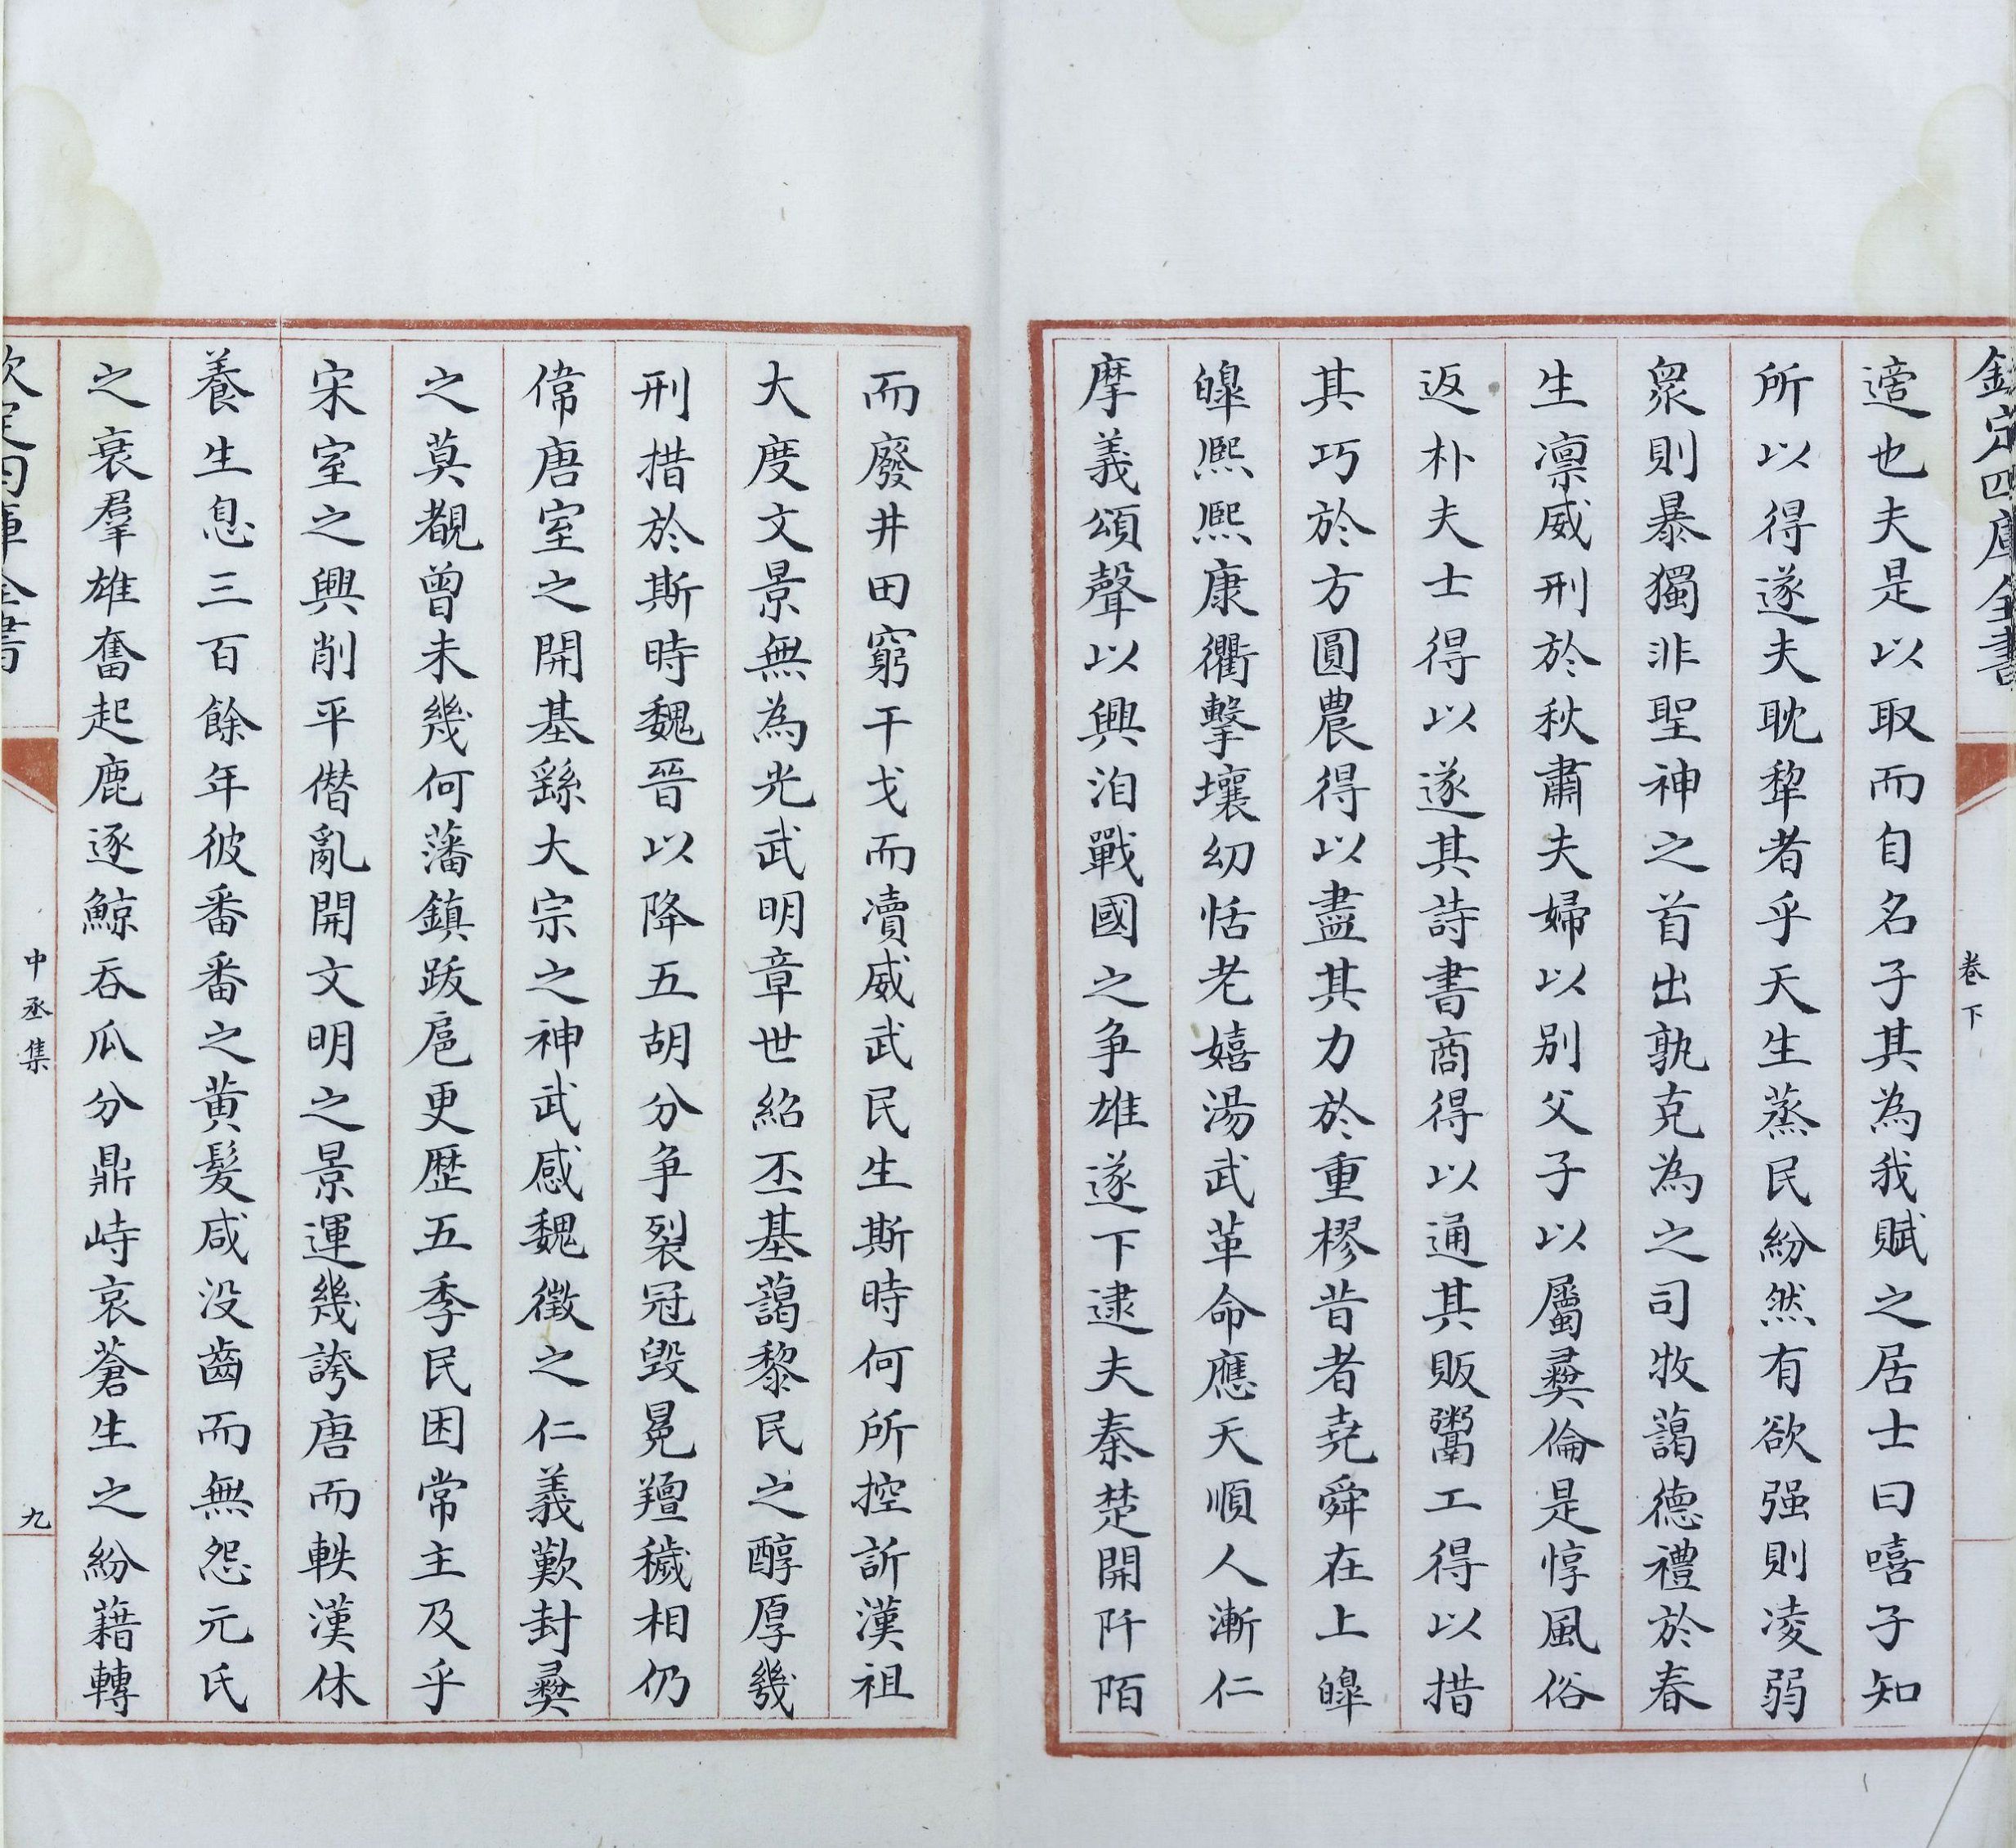 欽定四庫全書
卷下
適也夫是以取而自名子其為我賦之居士曰嘻子知
所以得遂夫耽犂者乎天生蒸民紛然有欲强則凌弱
衆則暴獨非聖神之首出孰克為之司牧藹德禮於春
生凛威刑於秋肅夫婦以别父子以屬彛倫是惇風俗
返朴夫士得以遂其詩書商得以通其販鬻工得以措
其巧於方圓農得以盡其力於重穋昔者堯舜在上皥
皥熙熙康衢擊壤幼恬老嬉湯武革命應天順人漸仁
摩義頌聲以興洎戰國之争雄遂下逮夫秦楚開阡陌
而廢井田窮干戈而瀆威武民生斯時何所控訢漢祖
大度文景無為光武明章世紹丕基藹黎民之醇厚幾
刑措於斯時魏晉以降五胡分争裂冠毁冕羶穢相仍
偉唐室之開基繇大宗之神武感魏徵之仁義歎封彛
之莫覩曾未幾何藩鎮跋扈更歴五季民困常主及乎
宋室之興削平僭亂開文明之景運幾誇唐而軼漢休
養生息三百餘年彼番番之黄髮咸没齒而無怨元氏
之衰羣雄奮起鹿逐鯨吞瓜分鼎峙哀蒼生之紛藉轉
欽定四庫全書
中丞集
九